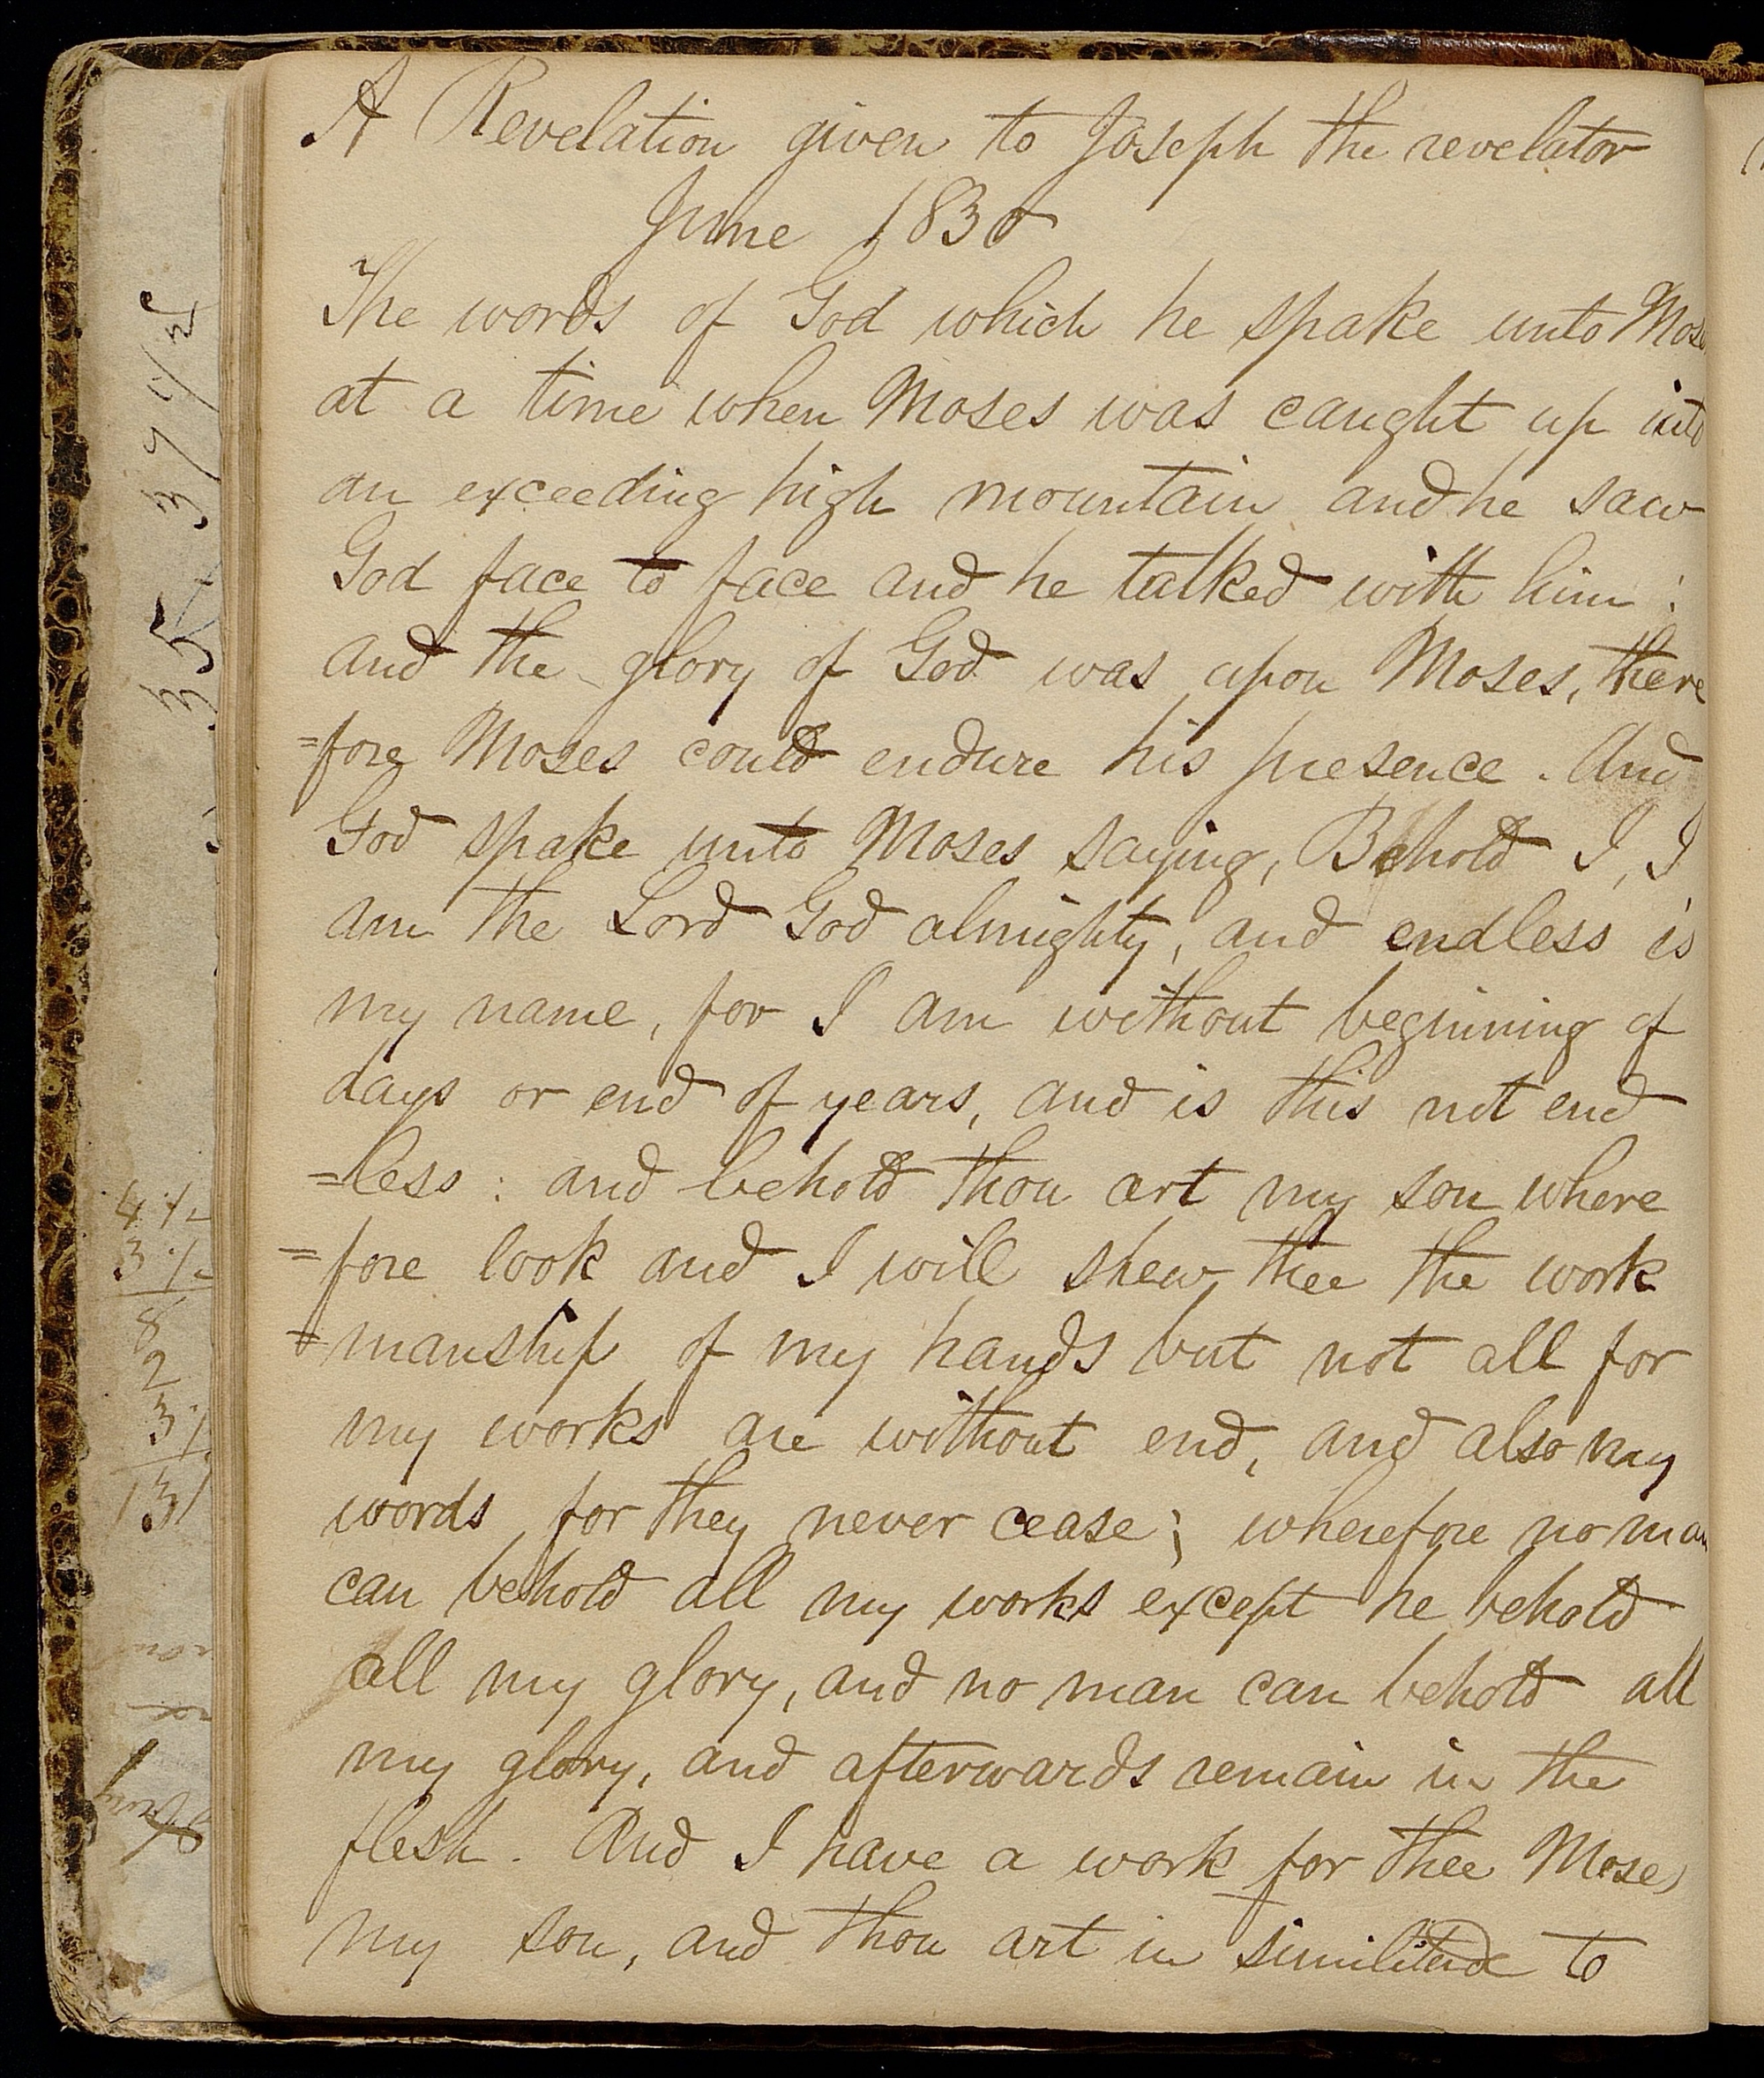 A Revelation given to Joseph the revelator
June 1830
The words of God which he spake unto Moses
at a time when Moses was caught up into
an exceeding high mountain and he saw
God face to face and he talked with him :
and the glory of God was upon Moses, there
=fore Moses could endure his presence. And
God spake unto Moses saying, Behold I, I
am the Lord God almighty, and endless is
my name, for I am without beginning of
days or end of years, and is this not end
=less : and behold thou art my son where
=fore look and I will shew thee the work
=manship of my hands but not all for
my works are without end, and also my
words for they never cease; wherefore no man
can behold all my works except he behold
all my glory, and no man can behold all
my glory, and afterwards remain in the
flesh. And I have a work for thee Moses
my son, and thou art in similitude to
8
2